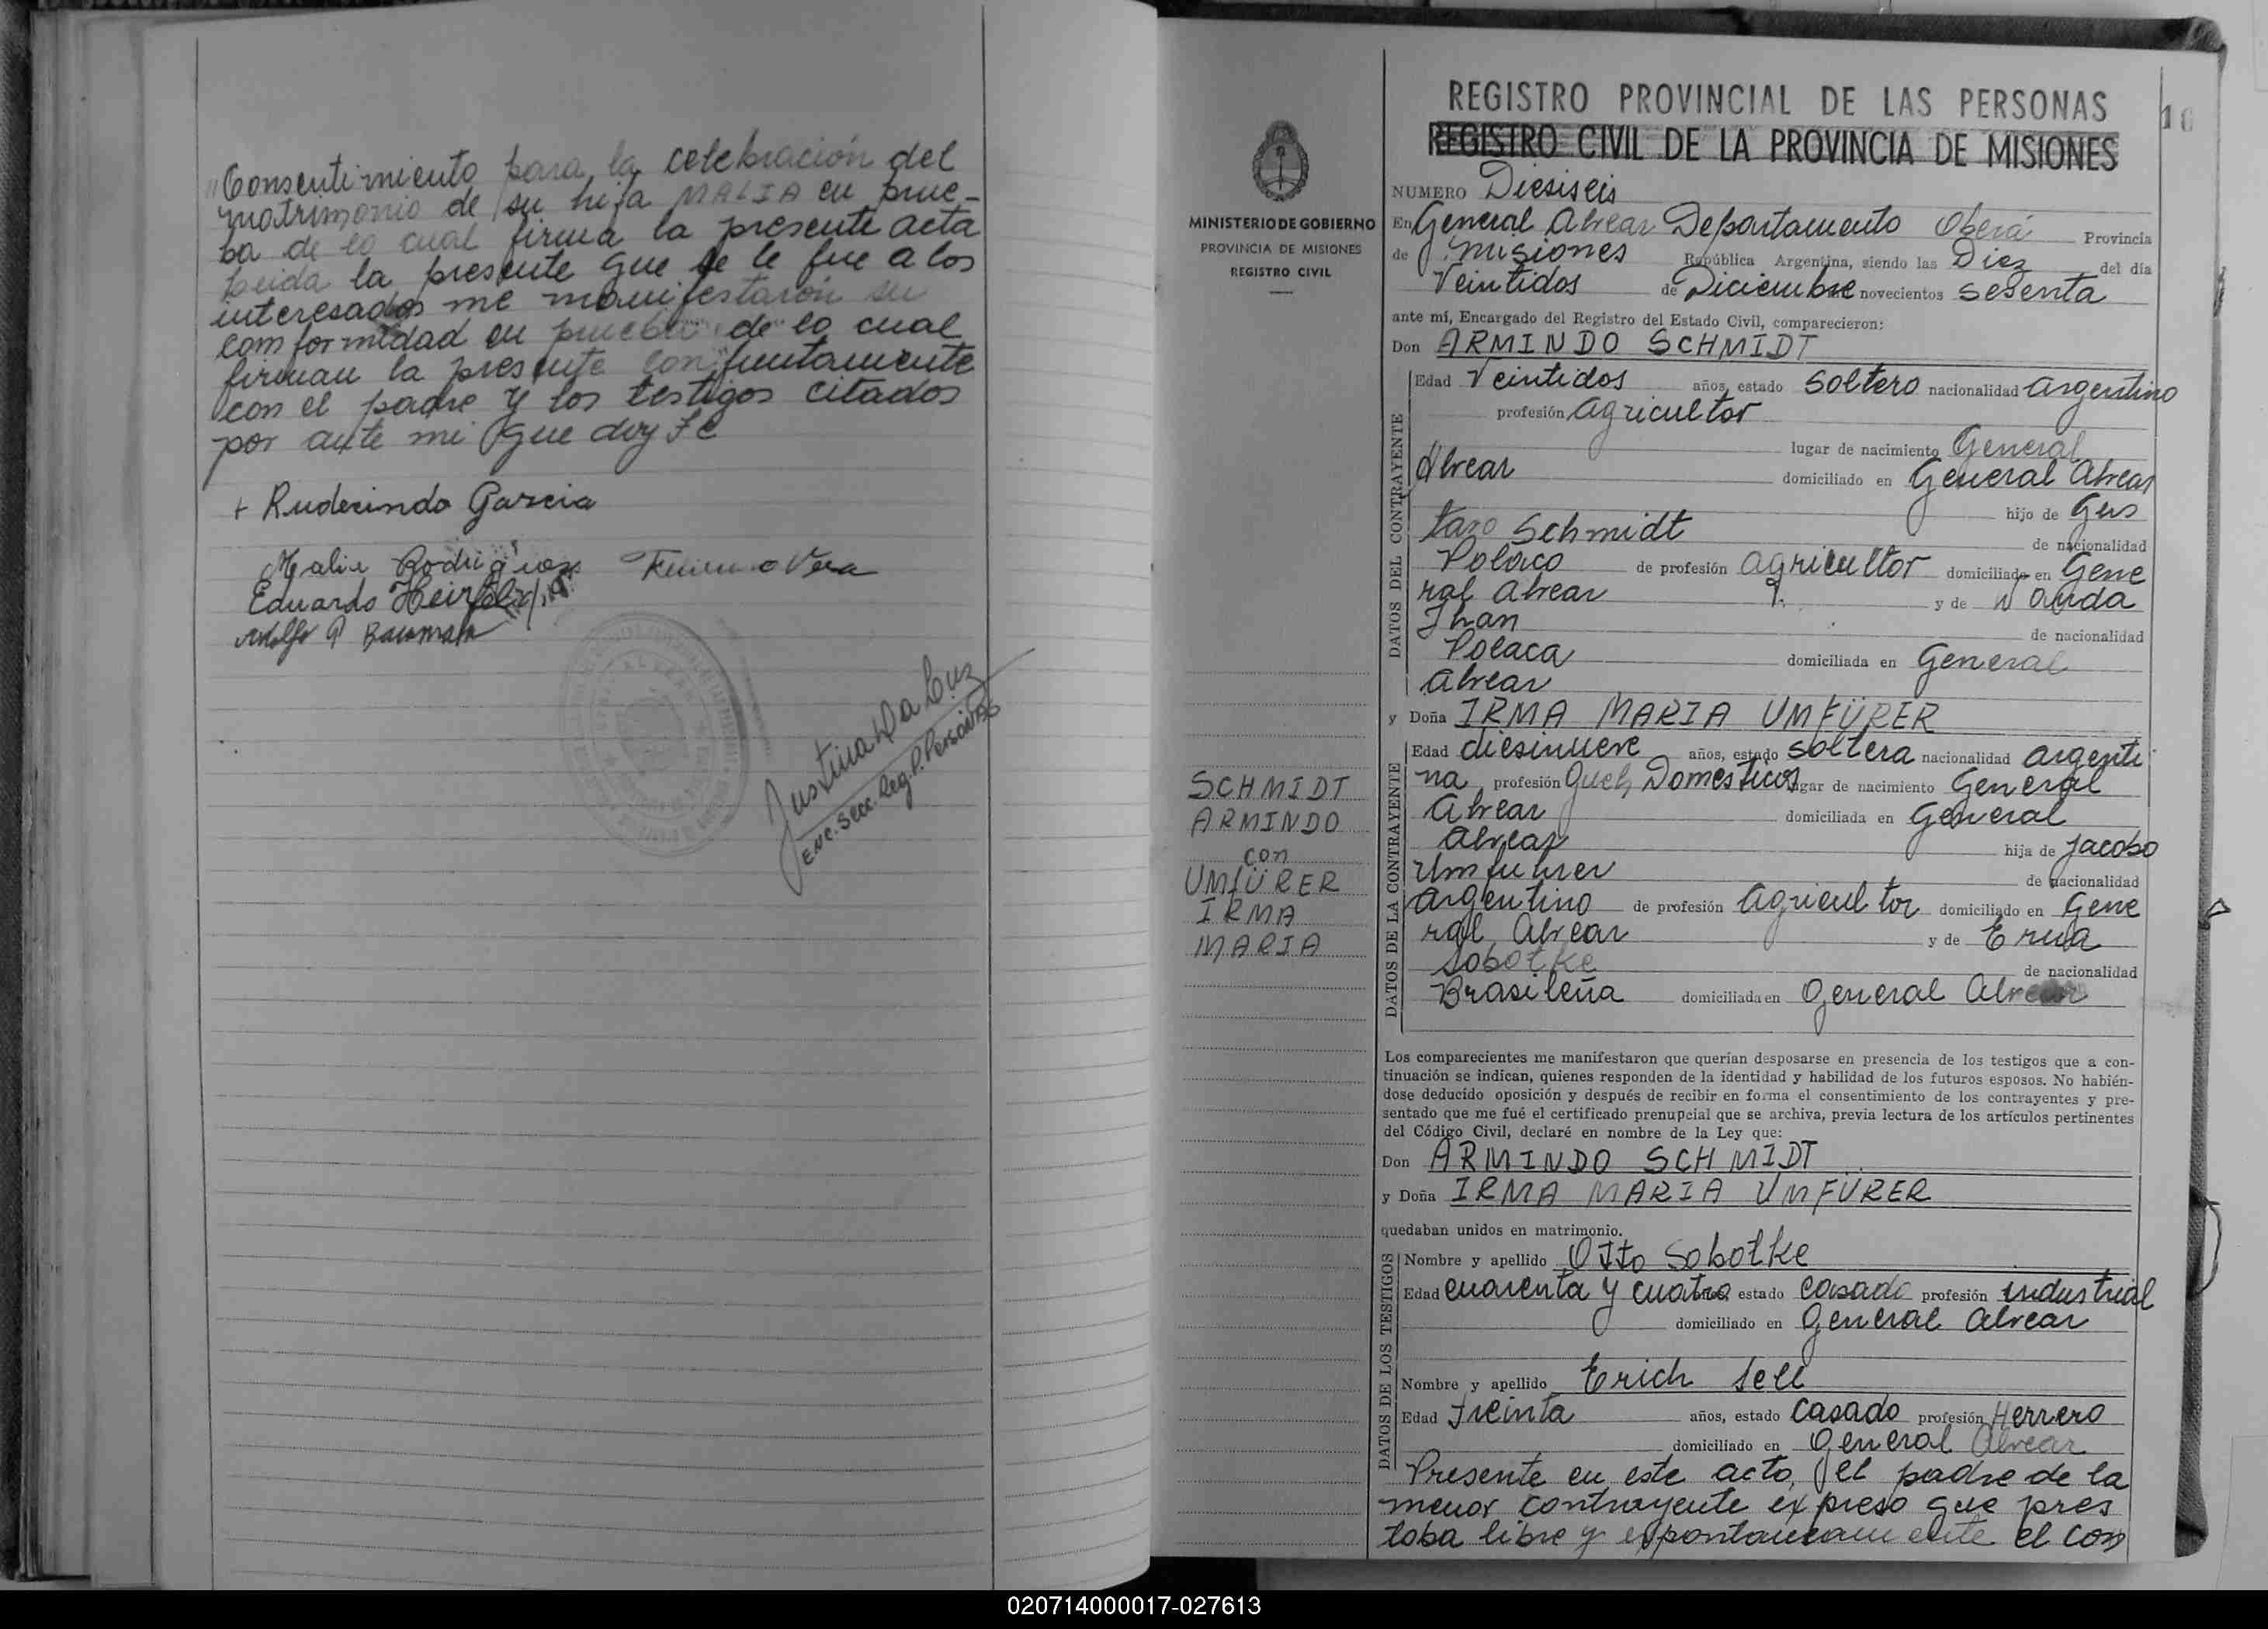 "Consentimiento para la celebración del
matrimonio de su hija MALIA en prue-
ba de lo cual firma la presente acta
leida la presente que se le fue a los
interesados me manifestaron su
comformidad en prueba de lo cual
firman la presente conjuntamente
con el padre y los testigos citados
por ante mi que doy Fé
+ Ruderindo Garcia
Malia Rodriguez
Eduardo
Adolfo P Bauman
Justina Da Luz
Enc. Secc. Reg. P. Personas
MINISTERIO DE GOBIERNO
PROVINCIA DE MISIONES
REGISTRO CIVIL
SCHMIDT
ARMINDO
con
UMFÜRER
IRMA
MARIA
REGISTRO PROVINCIAL DE LAS PERSONAS
16
REGISTRO CIVIL DE LA PROVINCIA DE MISIONES
NUMERO Diesiseis
En General Alvear Departamento Oberá Provincia
de Misiones República Argentina, siendo las Diez del día
Veintidos de Diciembre novecientos sesenta
ante mí, Encargado del Registro del Estado Civil, comparecieron:
Don ARMINDO SCHMIDT
DATOS DEL CONTRAYENTE
Edad Veintidos años, estado Soltero nacionalidad argentino
profesión agricultor
lugar de nacimiento General
Alvear domiciliado en General Alvear
hijo de Gus
tavo Schmidt de nacionalidad
Polaco de profesión agricultor domiciliado en Gene
ral Alvear y de Wanda
Jhan de nacionalidad
Polaca domiciliada en General
Alvear
y Doña IRMA MARIA UMFÜRER
DATOS DE LA CONTRAYENTE
Edad diesinueve años, estado soltera nacionalidad argenti
na profesión Queh. Domesticos lugar de nacimiento General
Alvear domiciliada en General
Alvear hija de Jacobo
Umfuhrer de nacionalidad
argentino de profesión agricultor domiciliado en Gene
ral Alvear y de Erna
Sobotke de nacionalidad
Brasileña domiciliada en General Alvear
Los comparecientes me manifestaron que querían desposarse en presencia de los testigos que a con-
tinuación se indican, quienes responden de la identidad y habilidad de los futuros esposos. No habién-
dose deducido oposición y después de recibir en forma el consentimiento de los contrayentes y pre-
sentado que me fué el certificado prenupcial que se archiva, previa lectura de los artículos pertinentes
del Código Civil, declaré en nombre de la Ley que:
Don ARMINDO SCHMIDT
y Doña IRMA MARIA UMFÜRER
quedaban unidos en matrimonio.
DATOS DE LOS TESTIGOS
Nombre y apellido Otto Sobotke
Edad cuarenta y cuatro estado casado profesión industrial
domiciliado en General Alvear
Nombre y apellido Erich Sell
Edad Treinta años, estado casado profesión Herrero
domiciliado en General Alvear
Presente en este acto, el padre de la
menor contrayente expreso que pres
taba libre y espontaneamente el con
020714000017-027613